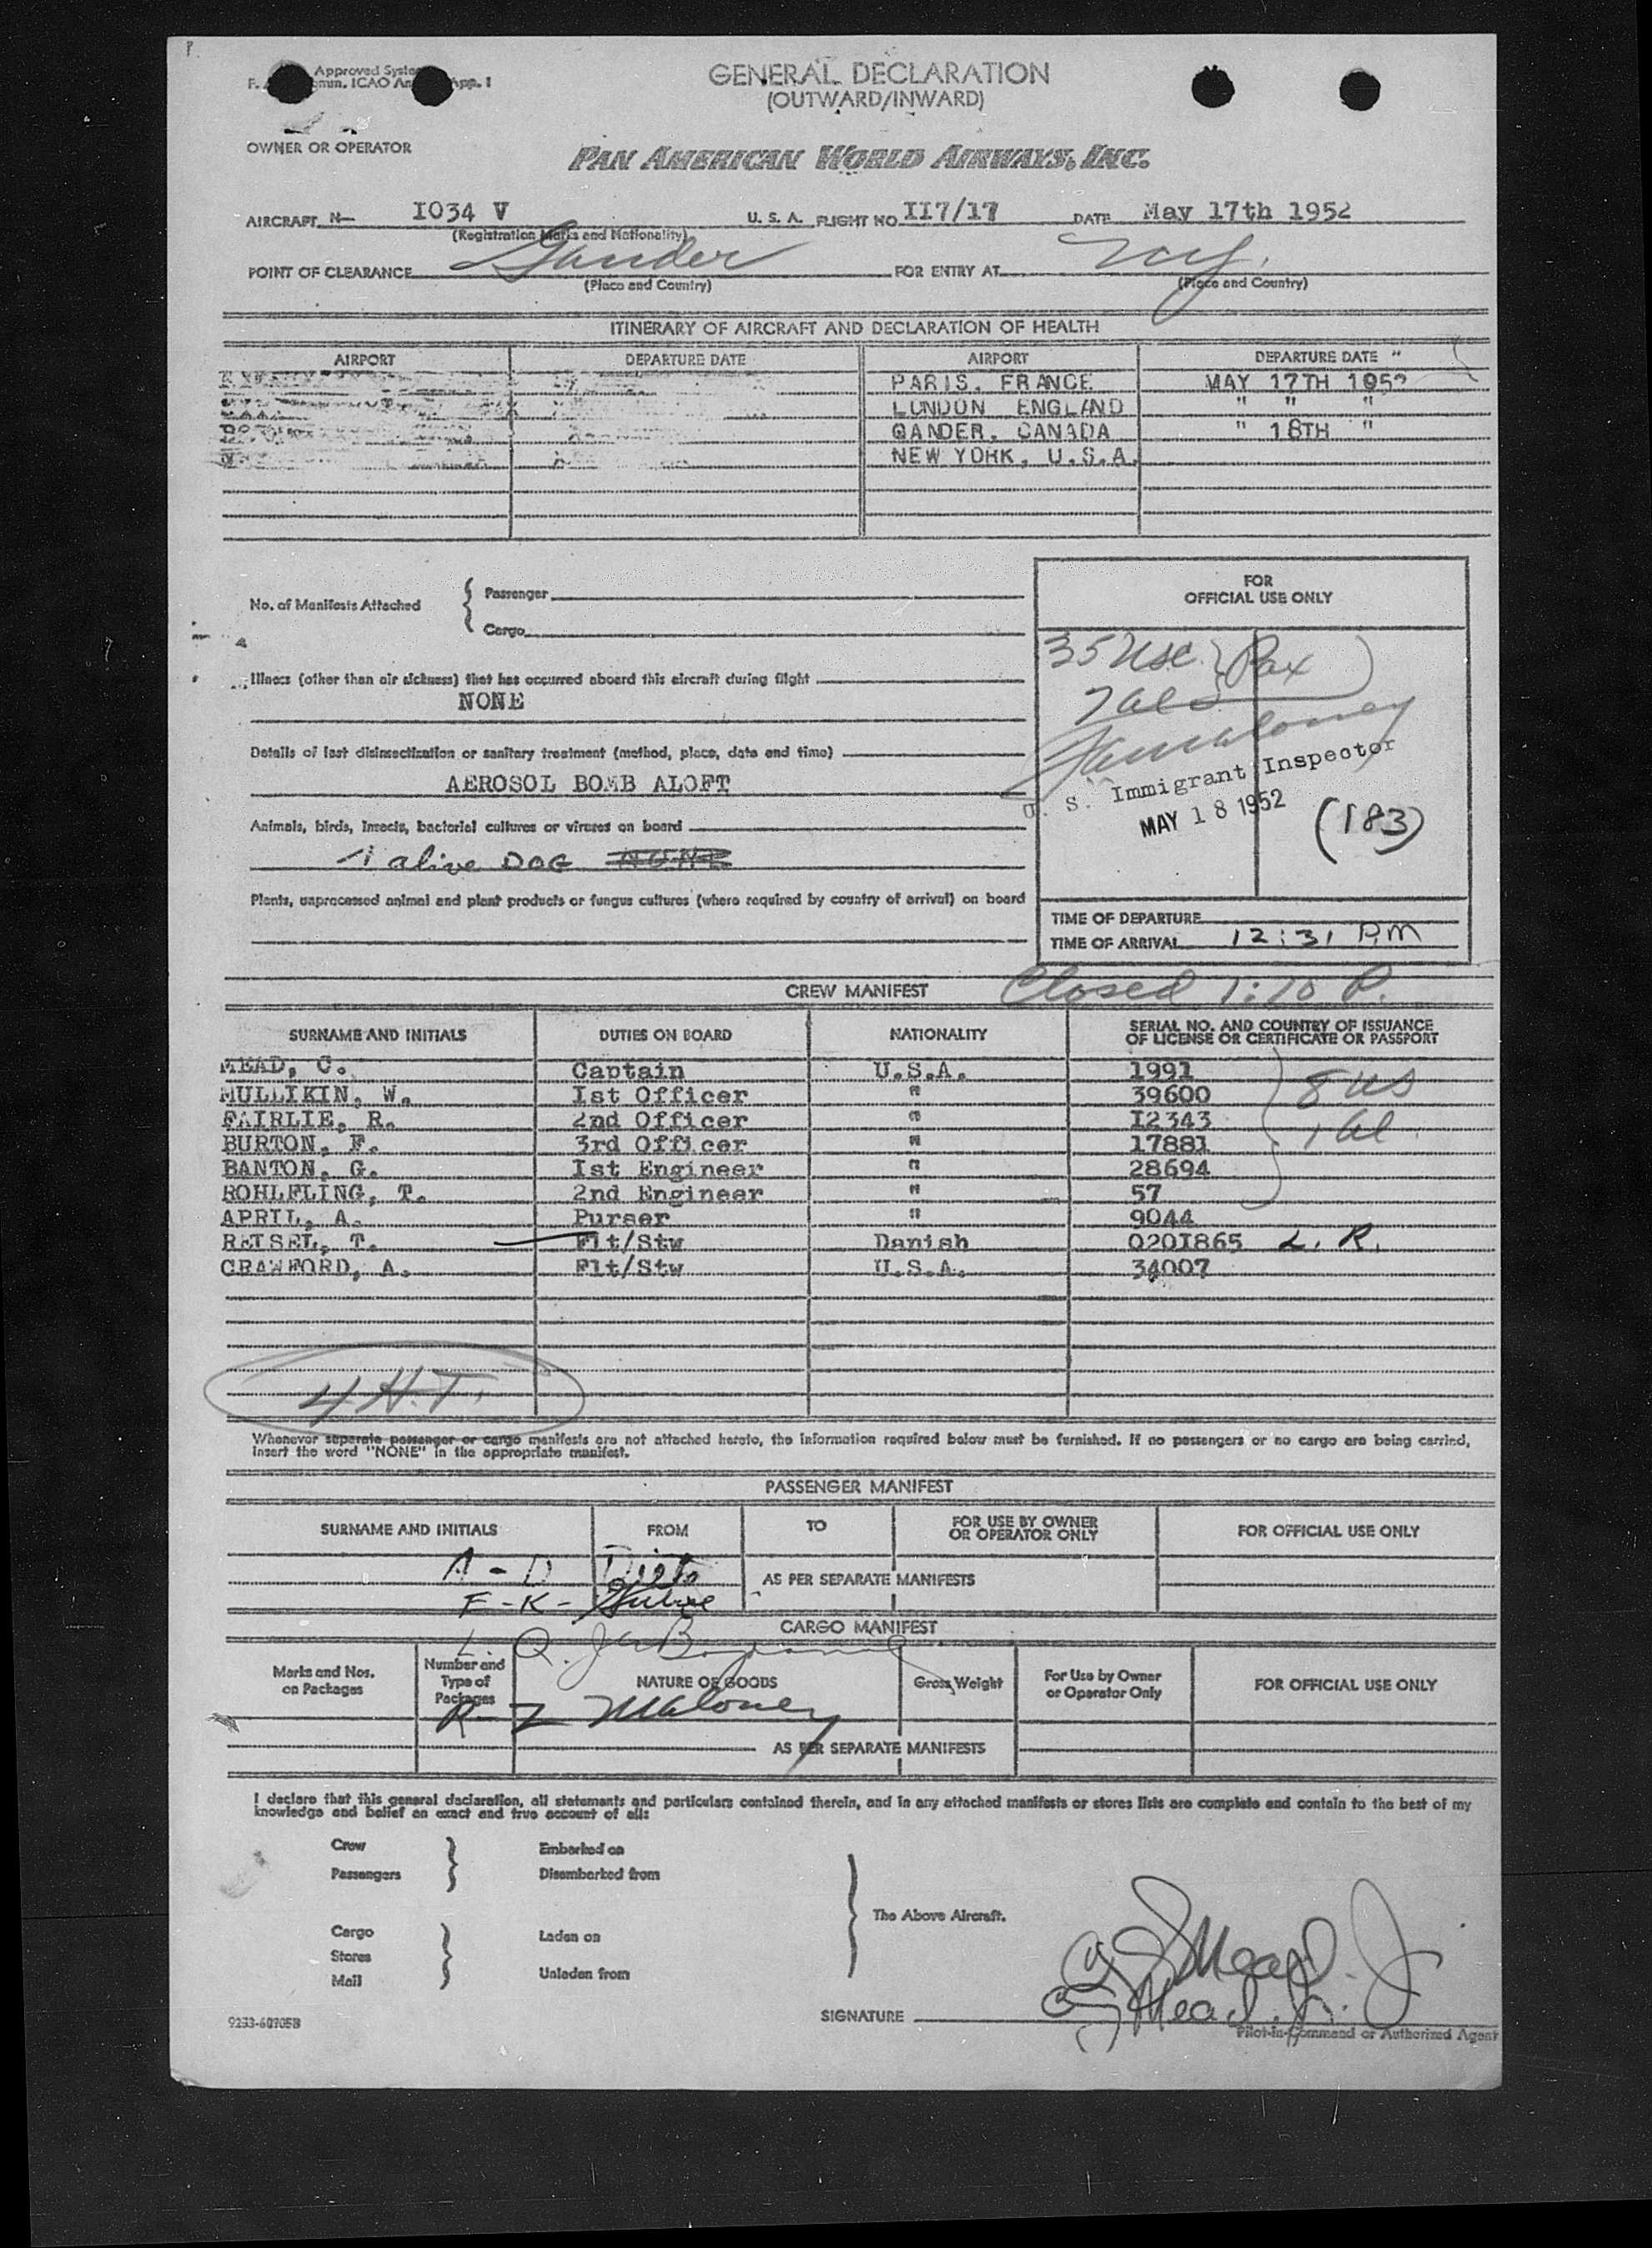 GENERAL DECLARATION
(OUTWARD/INWARD)
OWNER OR OPERATOR
PAN AMERICAN WORLD AIRWAYS, INC.
AIRCRAFT N— I034 V U. S. A. FLIGHT NO II7/17 DATE May 17th 1952
(Registration Marks and Nationality)
POINT OF CLEARANCE Gander FOR ENTRY AT NY.
(Place and Country) (Place and Country)
ITINERARY OF AIRCRAFT AND DECLARATION OF HEALTH
AIRPORT DEPARTURE DATE AIRPORT DEPARTURE DATE "
PARIS, FRANCE MAY 17TH 1952
LONDON ENGLAND " " "
GANDER, CANADA " 18TH "
NEW YORK, U.S.A.
FOR
OFFICIAL USE ONLY
No. of Manifests Attached { Passenger
Cargo
35 USC } Pax
7 als
Illness (other than air sickness) that has occurred aboard this aircraft during flight
NONE
Maloney
U. S. Immigrant Inspector
MAY 18 1952 (183)
Details of last disinsectization or sanitary treatment (method, place, date and time)
AEROSOL BOMB ALOFT
Animals, birds, insects, bacterial cultures or viruses on board
1 alive DOG NONE
Plants, unprocessed animal and plant products or fungus cultures (where required by country of arrival) on board
TIME OF DEPARTURE
TIME OF ARRIVAL 12:31 PM
CREW MANIFEST Closed 1:10 P.
SURNAME AND INITIALS DUTIES ON BOARD NATIONALITY SERIAL NO. AND COUNTRY OF ISSUANCE
OF LICENSE OR CERTIFICATE OR PASSPORT
MEAD, C. Captain U.S.A. 1991
MULLIKIN, W. Ist Officer " 39600 8 US
FAIRLIE, R. 2nd Officer " I2343 1 al.
BURTON, F. 3rd Officer " 17881
BANTON, G. Ist Engineer " 28694
ROHLFLING, T. 2nd Engineer " 57
APRIL, A. Purser " 9044
REISEL, T. Flt/Stw Danish 020I865 L. R.
CRAWFORD, A. Flt/Stw U.S.A. 34007
4 H.T.
Whenever separate passenger or cargo manifests are not attached hereto, the information required below must be furnished. If no passengers or no cargo are being carried,
insert the word "NONE" in the appropriate manifest.
PASSENGER MANIFEST
SURNAME AND INITIALS FROM TO FOR USE BY OWNER
OR OPERATOR ONLY FOR OFFICIAL USE ONLY
A - D
AS PER SEPARATE MANIFESTS
F - K -
CARGO MANIFEST
L. Q.
Marks and Nos.
on Packages Number and
Type of
Packages NATURE OF GOODS Gross Weight For Use by Owner
or Operator Only FOR OFFICIAL USE ONLY
R - Z Maloney
AS PER SEPARATE MANIFESTS
I declare that this general declaration, all statements and particulars contained therein, and in any attached manifests or stores lists are complete and contain to the best of my
knowledge and belief an exact and true account of all:
Crew Embarked on
Passengers Disembarked from
The Above Aircraft.
Cargo Laden on
Stores
Mail Unladen from
Mead. Jr
SIGNATURE Mead. Jr.
Pilot-in-Command or Authorized Agent